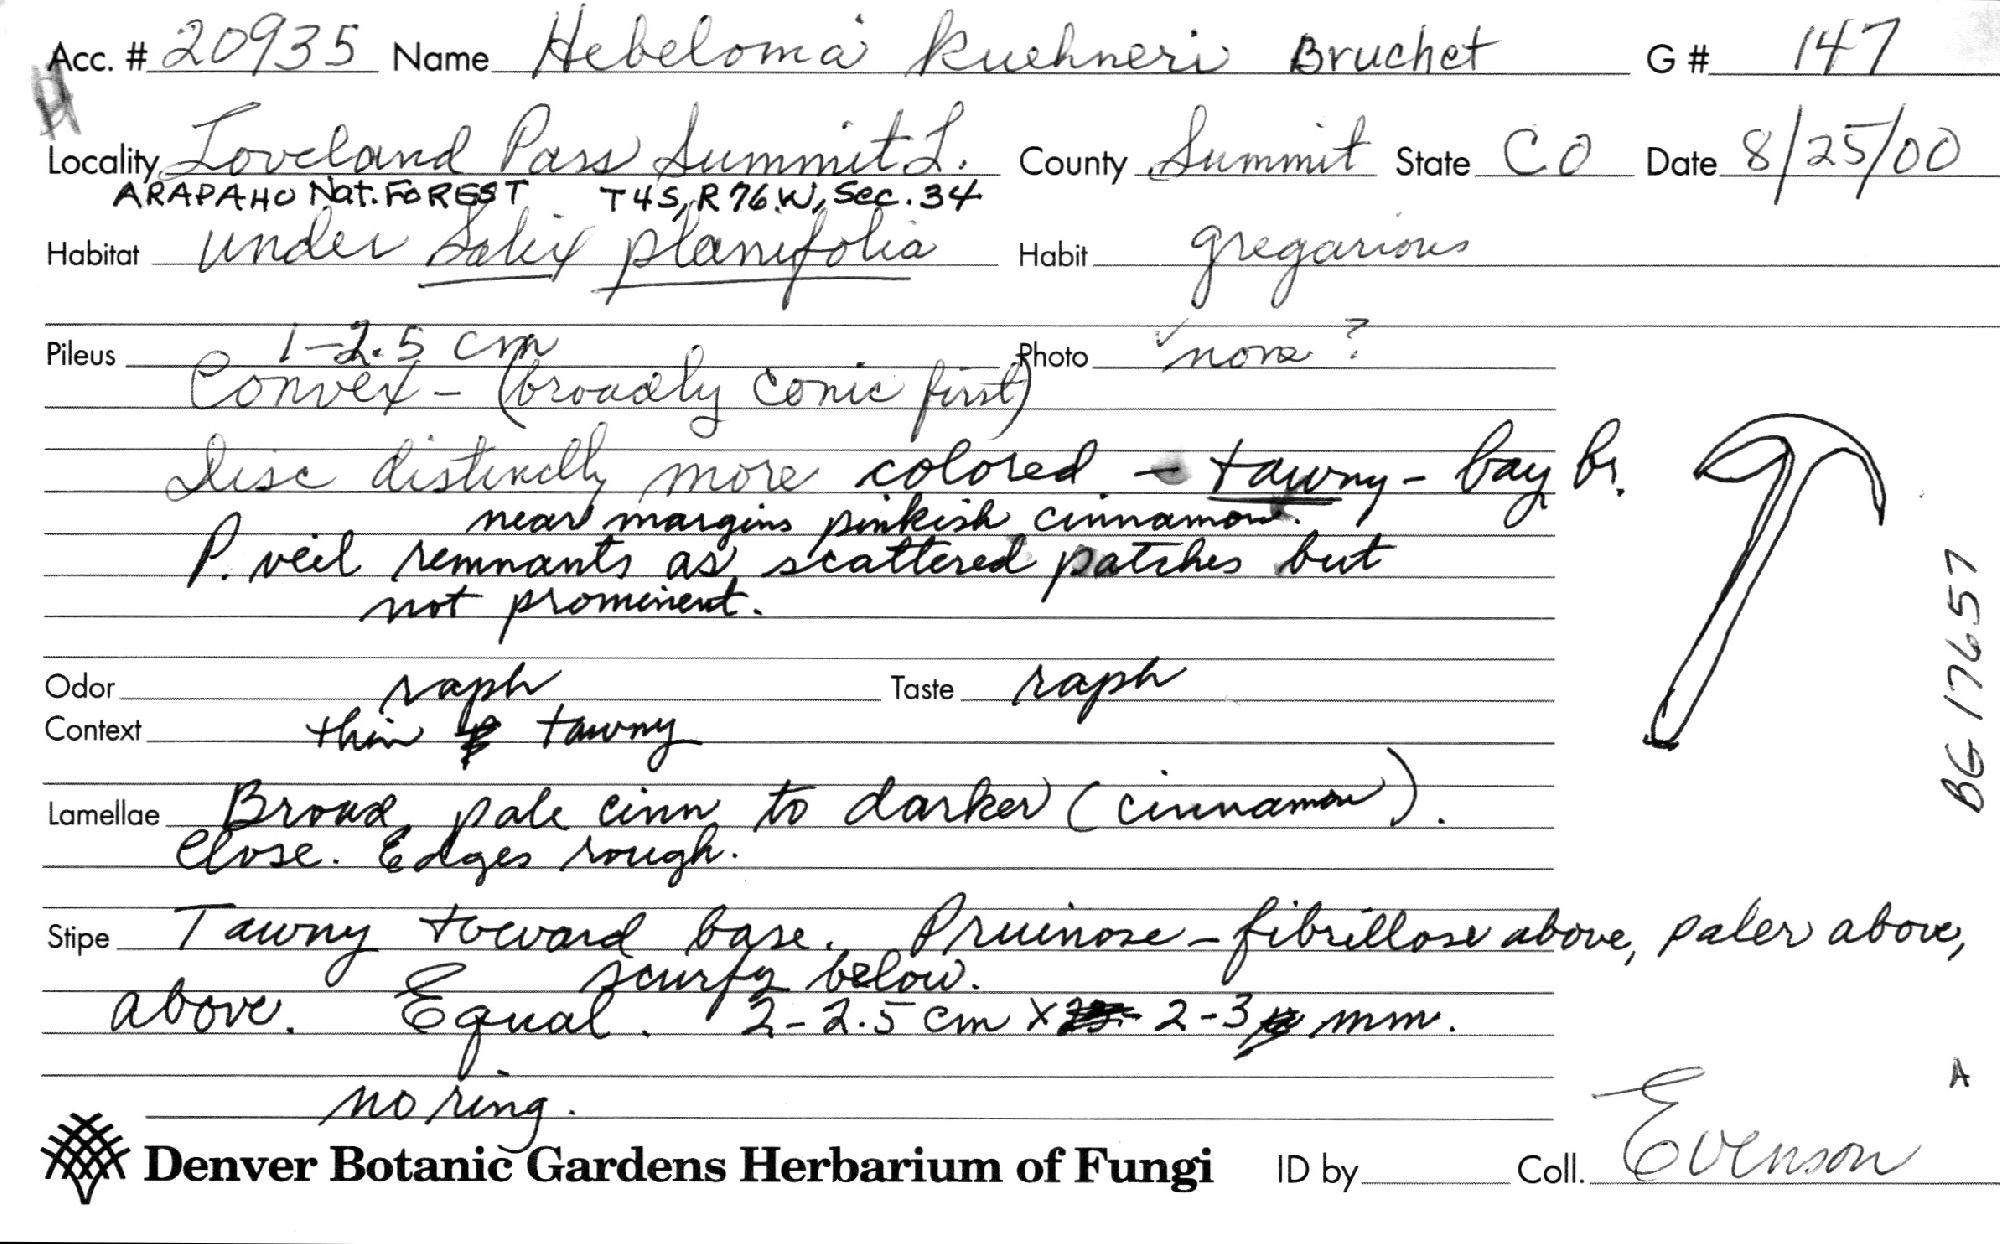 Acc. # 20935 Name Hebeloma kuehneri Bruchet G # 147
Locality Loveland Pass Summit L. County Summit State CO Date 8/25/00
ARAPAHO Nat. FOREST T4S, R76W, Sec. 34
Habitat under Salix planifolia Habit gregarious
Pileus 1-2.5 cm Photo ✓ none ?
Convex - (broadly conic first)
Disc distinctly more colored - tawny - bay br.
near margins pinkish cinnamon.
P. veil remnants as scattered patches but
not prominent.
Odor raph Taste raph
Context thin tawny
Lamellae Broad, pale cinn to darker (cinnamon).
Close. Edges rough.
Stipe Tawny toward base. Pruinose - fibrillose above, paler above,
scurfy below.
above. Equal. 2-2.5 cm x 2-3 mm.
no ring.
BG 17657
A
Denver Botanic Gardens Herbarium of Fungi ID by Coll. Evenson